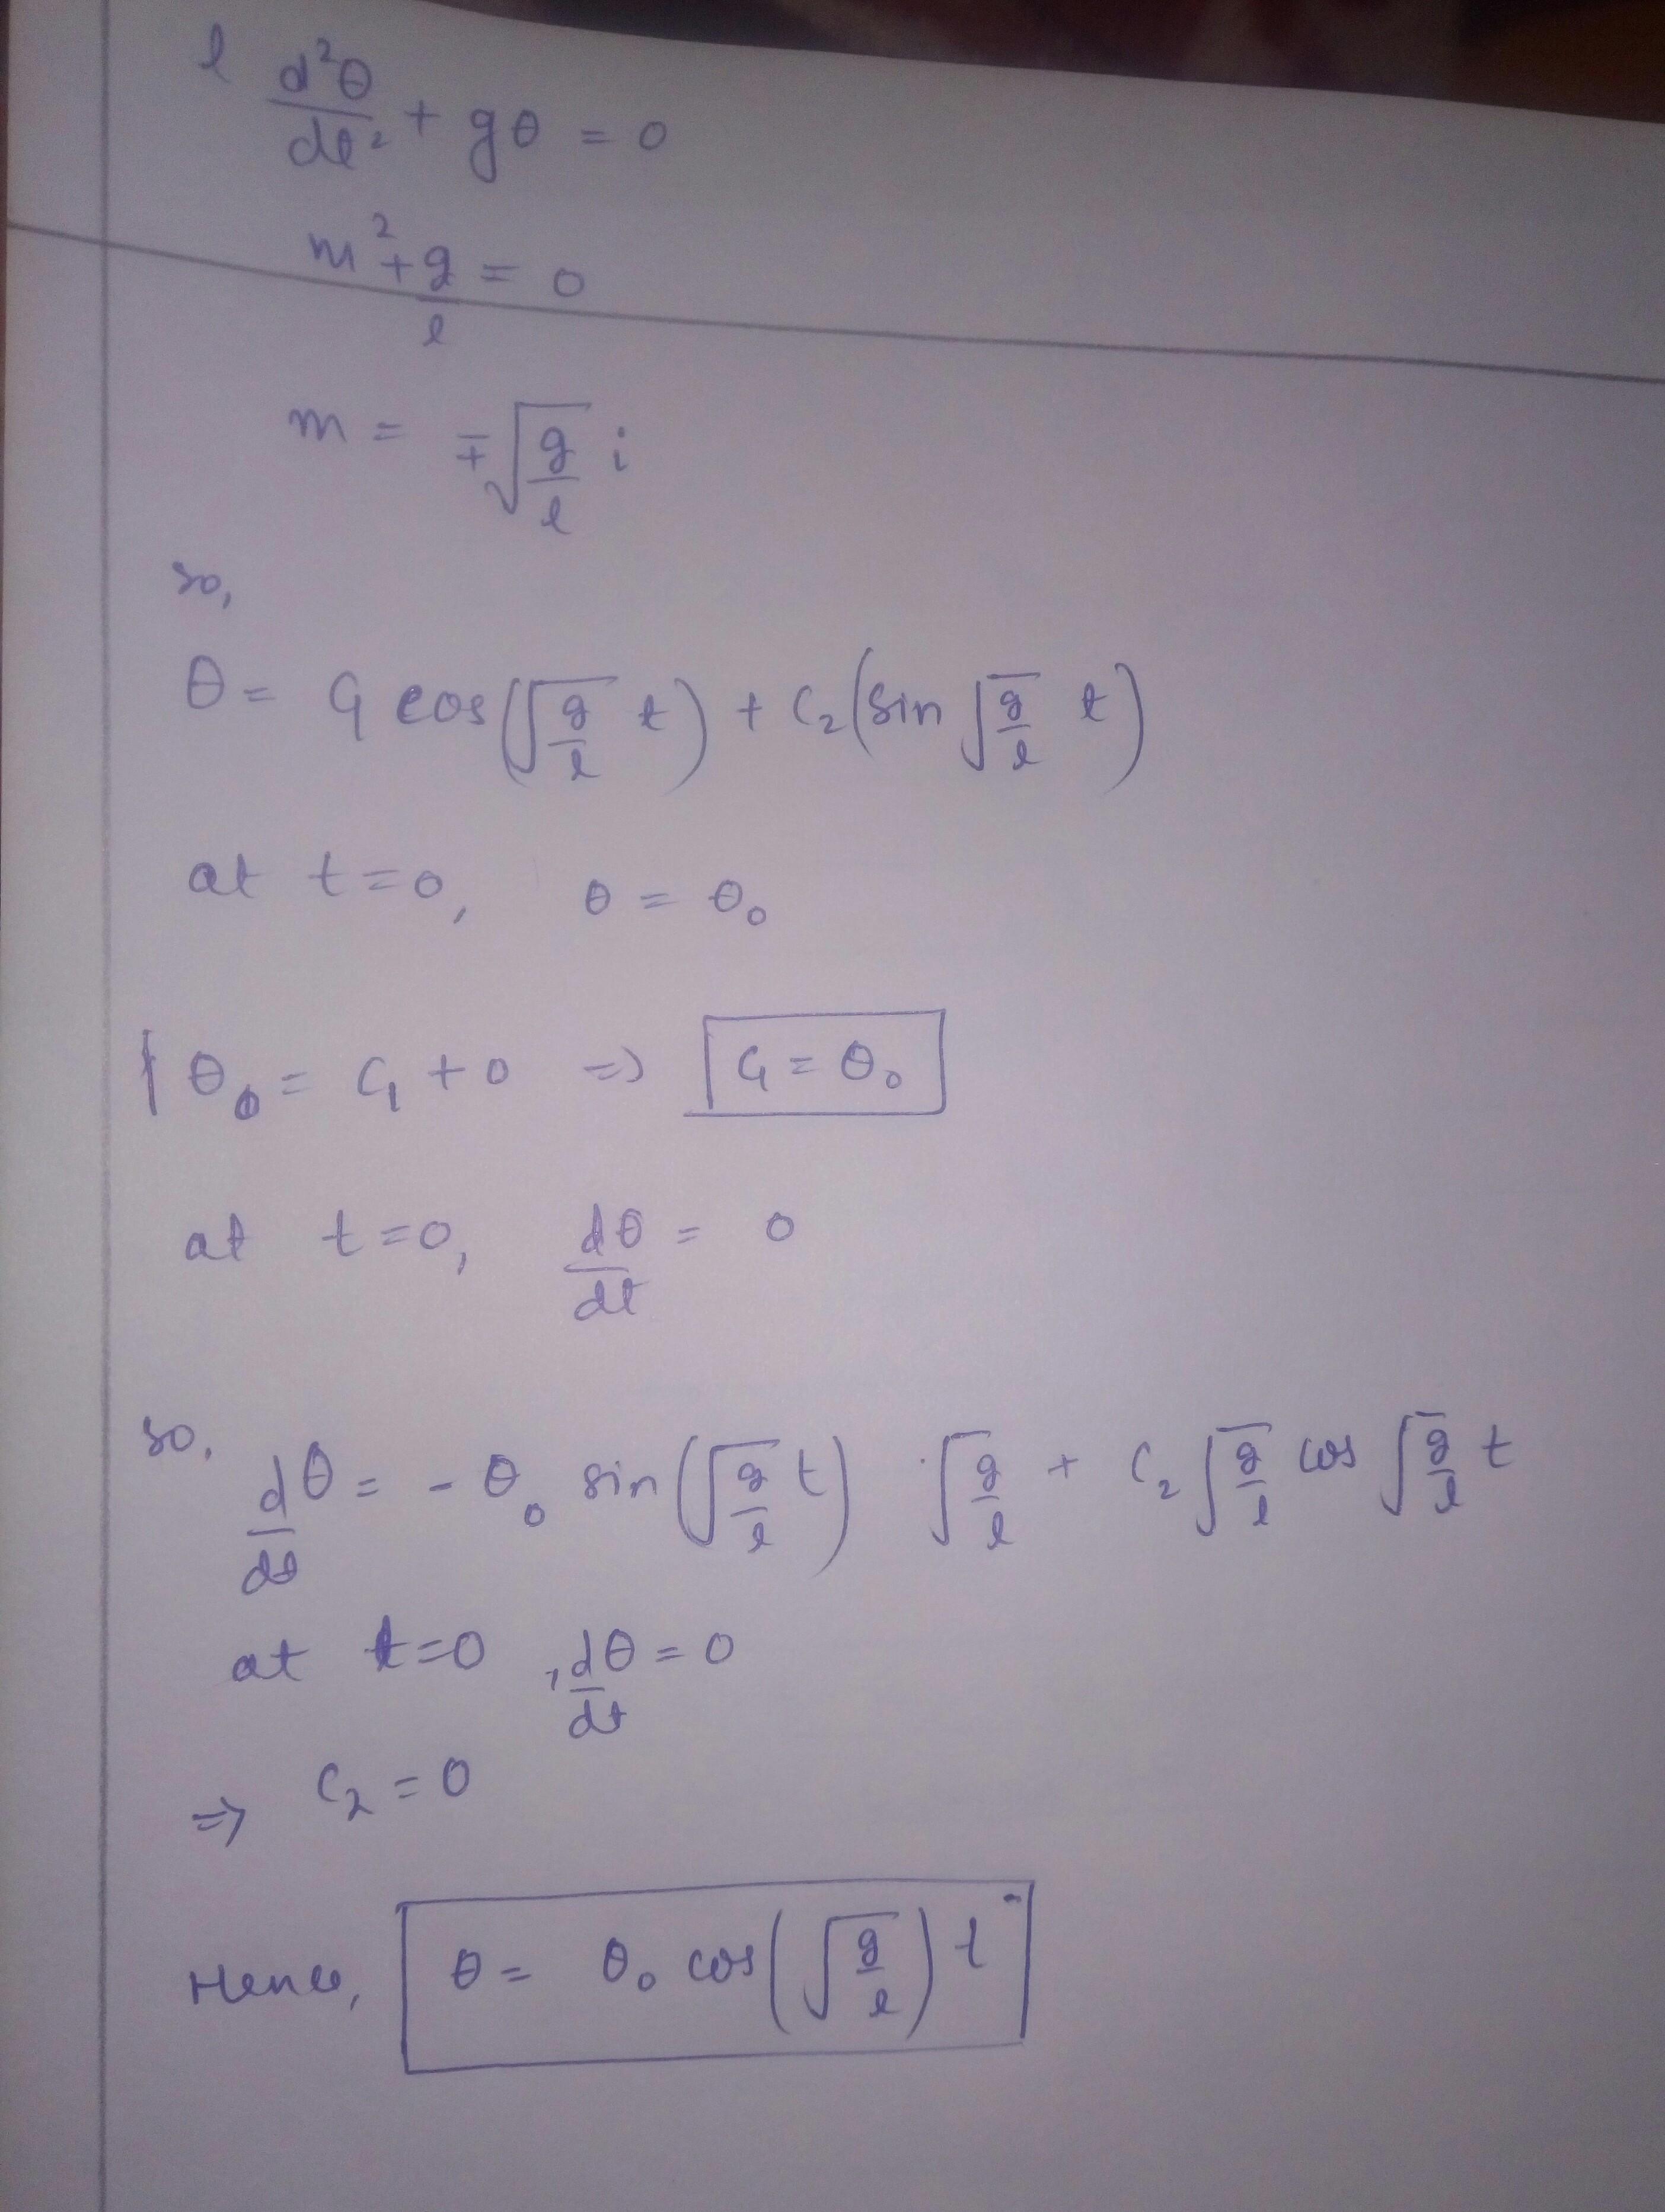 l d²θ/dt² + gθ = 0
m² + g/l = 0
m = ∓√(g/l) i
so,
θ = C₁ cos(√(g/l) t) + C₂(sin √(g/l) t)
at t=0, θ = θ₀
θ₀ = C₁ + 0 => C₁ = θ₀
at t=0, dθ/dt = 0
so, dθ/dt = - θ₀ sin(√(g/l) t) · √(g/l) + C₂ √(g/l) cos √(g/l) t
at t=0, dθ/dt = 0
=> C₂ = 0
Hence, θ = θ₀ cos(√(g/l)) t